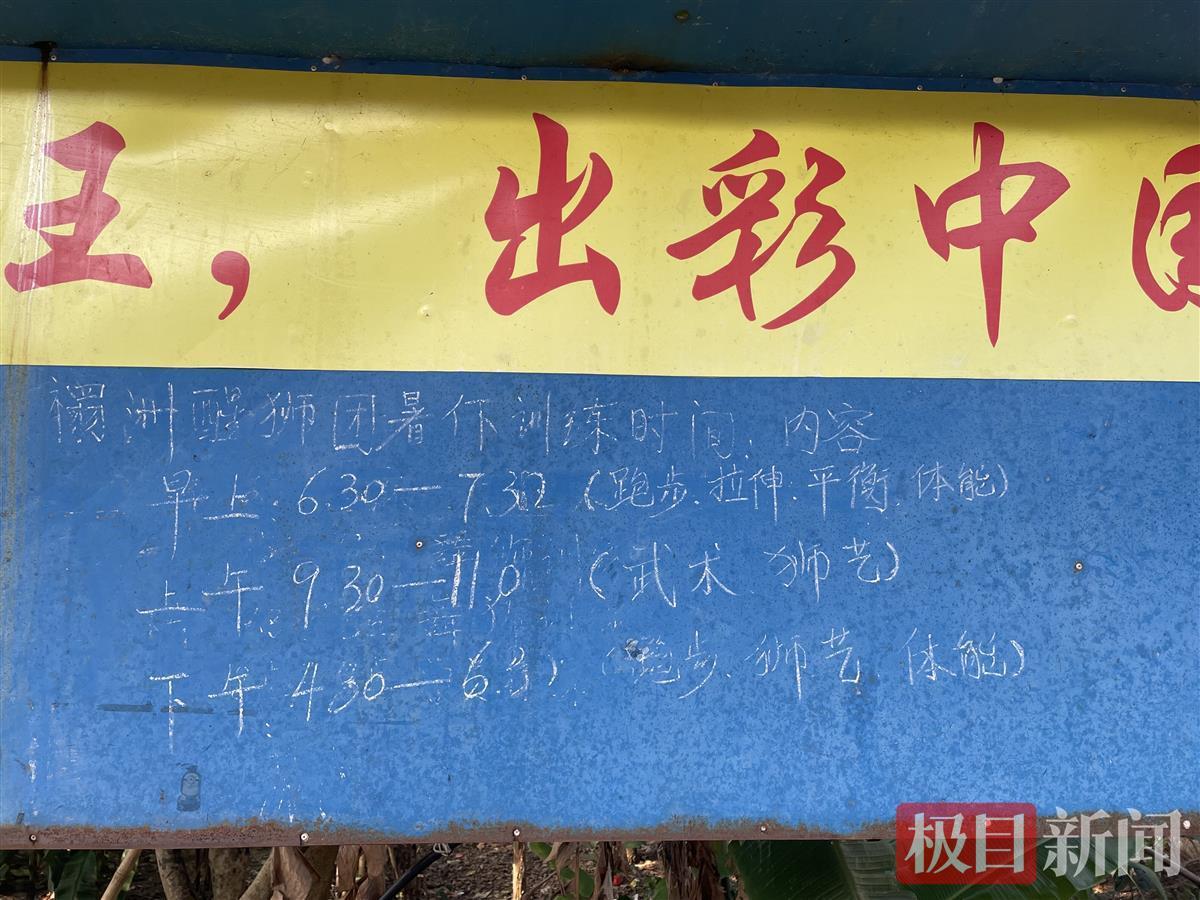 王，出彩中国
洲醒狮团暑假训练时间、内容
早上:6.30—7.30（跑步、拉伸、平衡、体能）
上午:9.30—11.0（武术、狮艺）
下午:4.30—6.3（跑步、狮艺、体能）
极目新闻